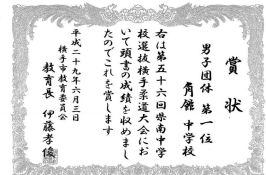 賞状
男子団体 第一位
角館 中学校
右は第五十六回県南中学
校選抜横手柔道大会にお
いて頭書の成績を収めまし
たのでこれを賞します
平成二十九年六月三日
横手市教育委員会
教育長 伊藤孝俊